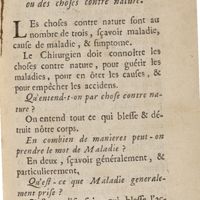 ou des choses contre nature.
LEs choses contre nature sont au
nombre de trois, sçavoir maladie,
cause de maladie, & symptome.
Le Chirurgien doit connoître les
choses contre nature, pour guérir les
maladies, pour en ôter les causes, &
pour empêcher les accidens.
Qu'entend-t-on par chose contre na-
ture?
On entend tout ce qui blesse & dé-
truit nôtre corps.
En combien de manieres peut-on
prendre le mot de Maladie?
En deux, sçavoir généralement, &
particulierement,
Qu'est-ce que Maladie generale-
ment prise?